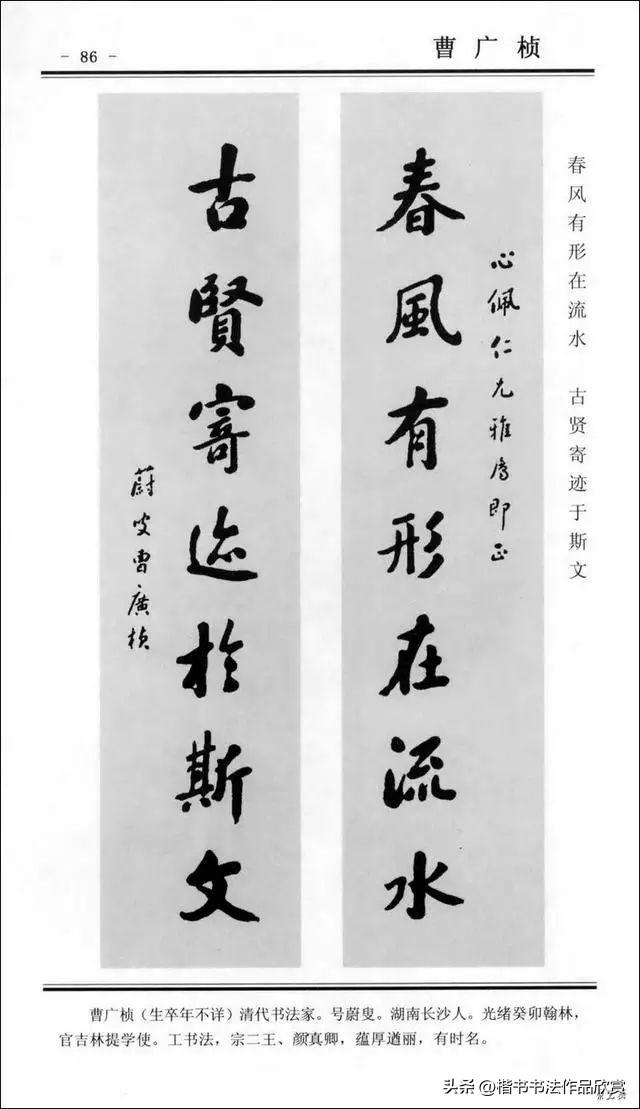 - 86 -
曹广桢
春风有形在流水 古贤寄迹于斯文
心佩仁兄雅属即正
春風有形在流水
古賢寄迹於斯文
蔚叟曹廣楨
曹广桢（生卒年不详）清代书法家。号蔚叟。湖南长沙人。光绪癸卯翰林，
官吉林提学使。工书法，宗二王、颜真卿，蕴厚遒丽，有时名。
头条 @楷书书法作品欣赏